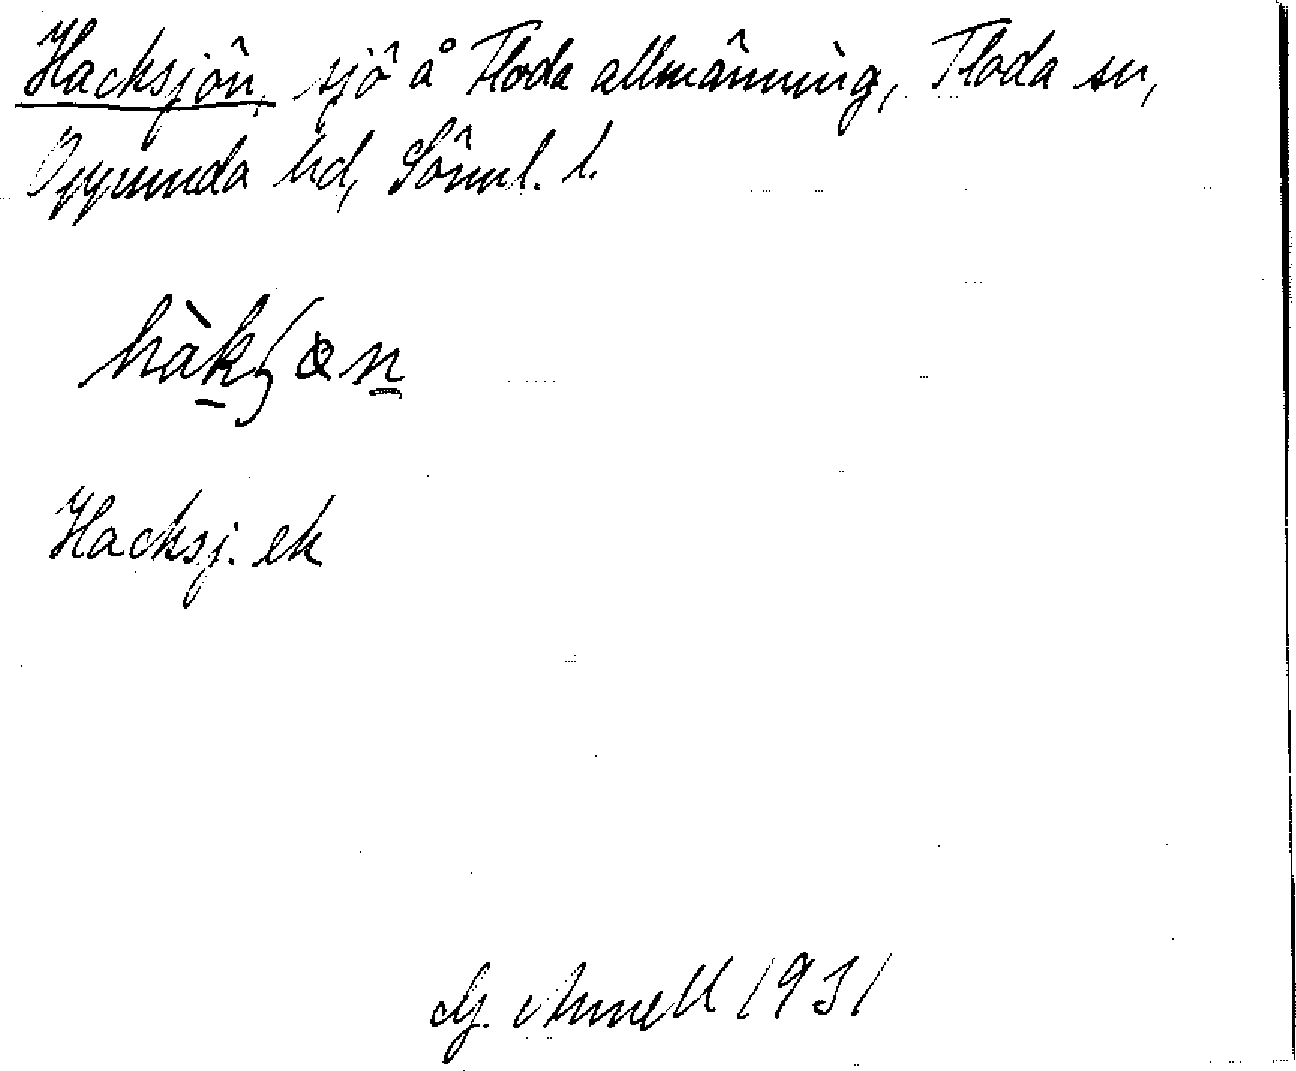 Hacksjön, sjö å Floda allmänning, Floda sn,
Oppunda hd, Sörml. l.
hàkʃøn
Hacksj. ek
G. Annell 1931